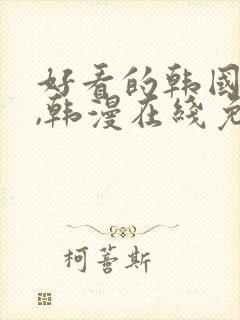 好看的韩国
,韩漫在线免
柯蔷斯